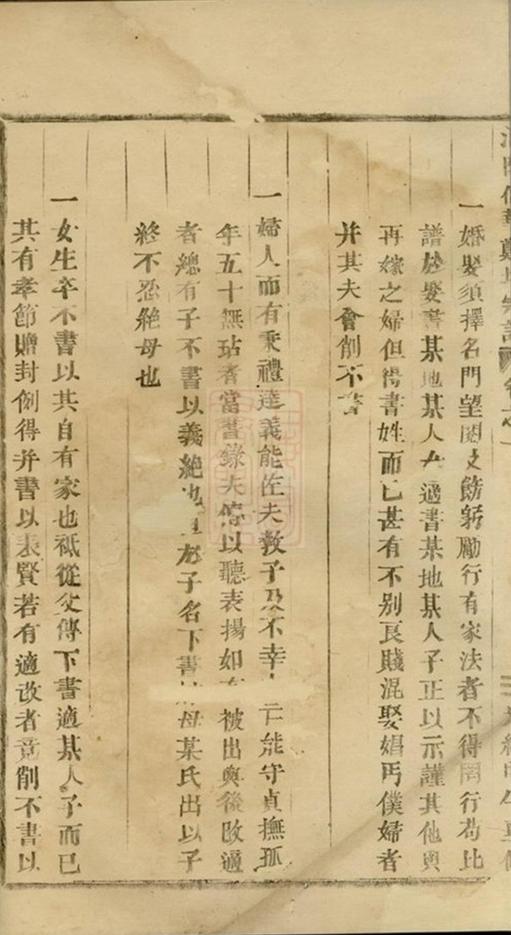 一婚娶須擇名門望閥文飭躬勵行有家法者不得罔行苟比
譜於娶書某地某人女適書某地某人子正以示謹其他與
再嫁之婦但得書姓而已甚有不别良賤混娶娼丐僕婦者
并其夫會削不書
一婦人而有秉禮達義能佐夫敎子及不幸 亡能守貞撫孤
年五十無玷者當書錄夫傳以聽表揚如有 被出與後改適
者縂有子不書以義絶也 於子名下書 母某氏出以子
終不忍絶母也
一女生卒不書以其自有家也祗從父傳下書適某人子而已
其有孝節贈封例得并書以表賢若有適改者竟削不書以